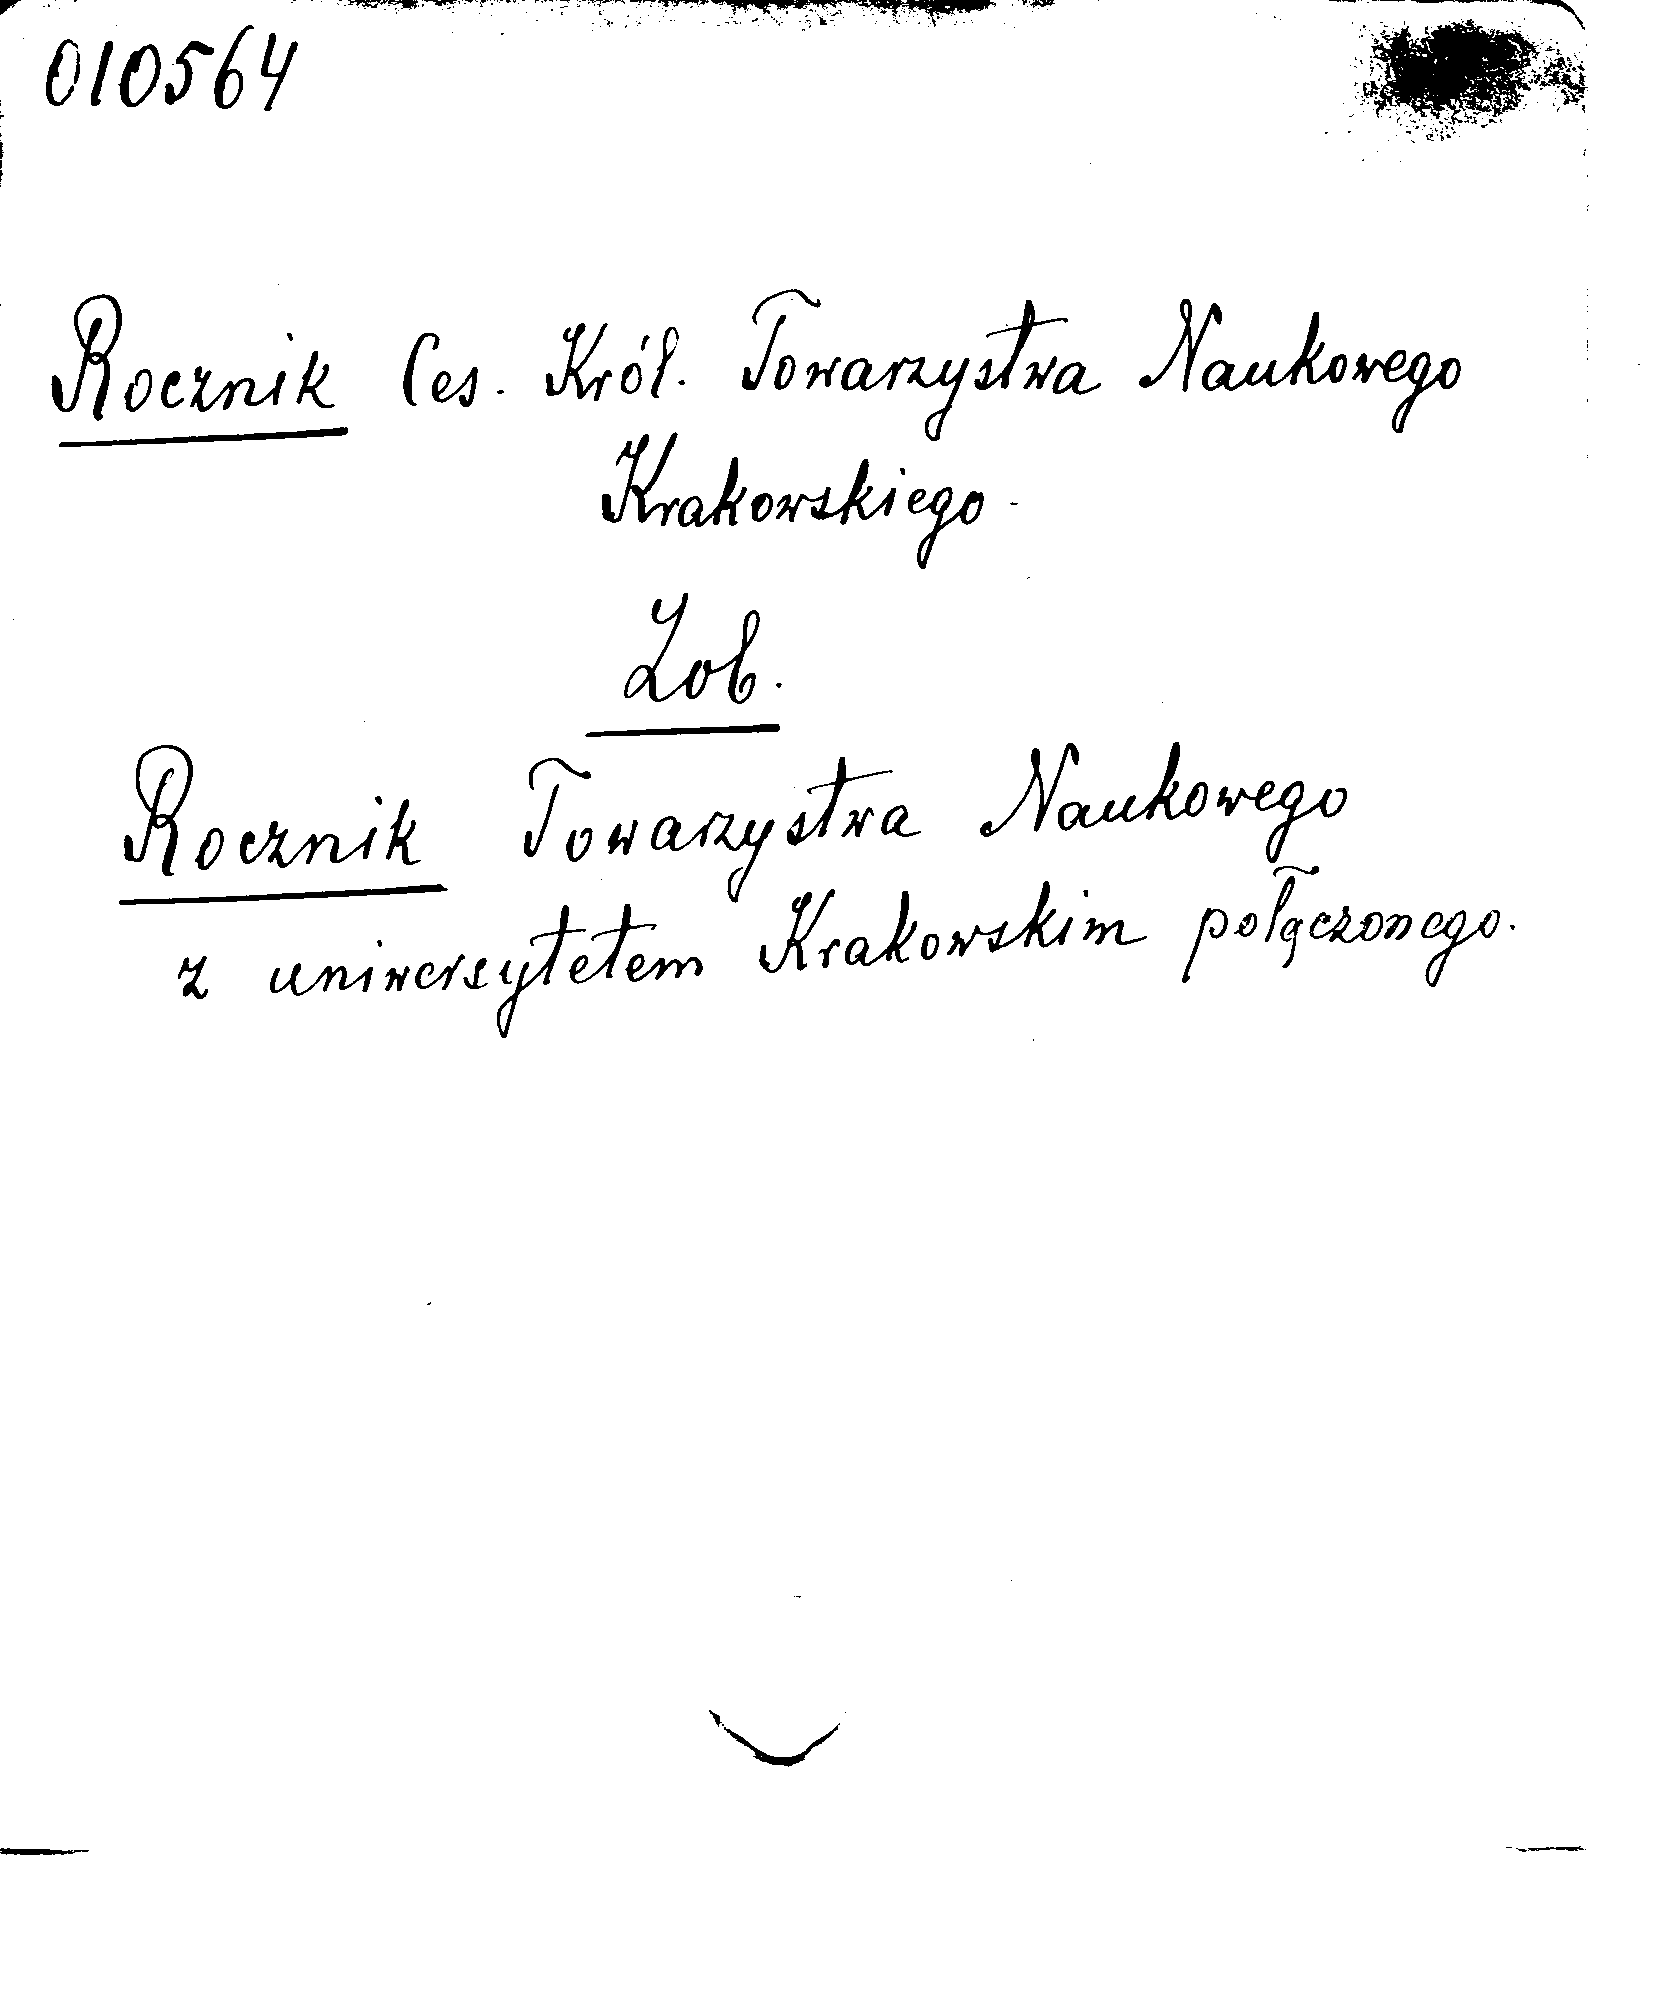 010564
Rocznik Ces. Król. Towarzystwa Naukowego
Krakowskiego.
Zob.
Rocznik Towarzystwa Naukowego
z uniwersytetem Krakowskim połączonego.